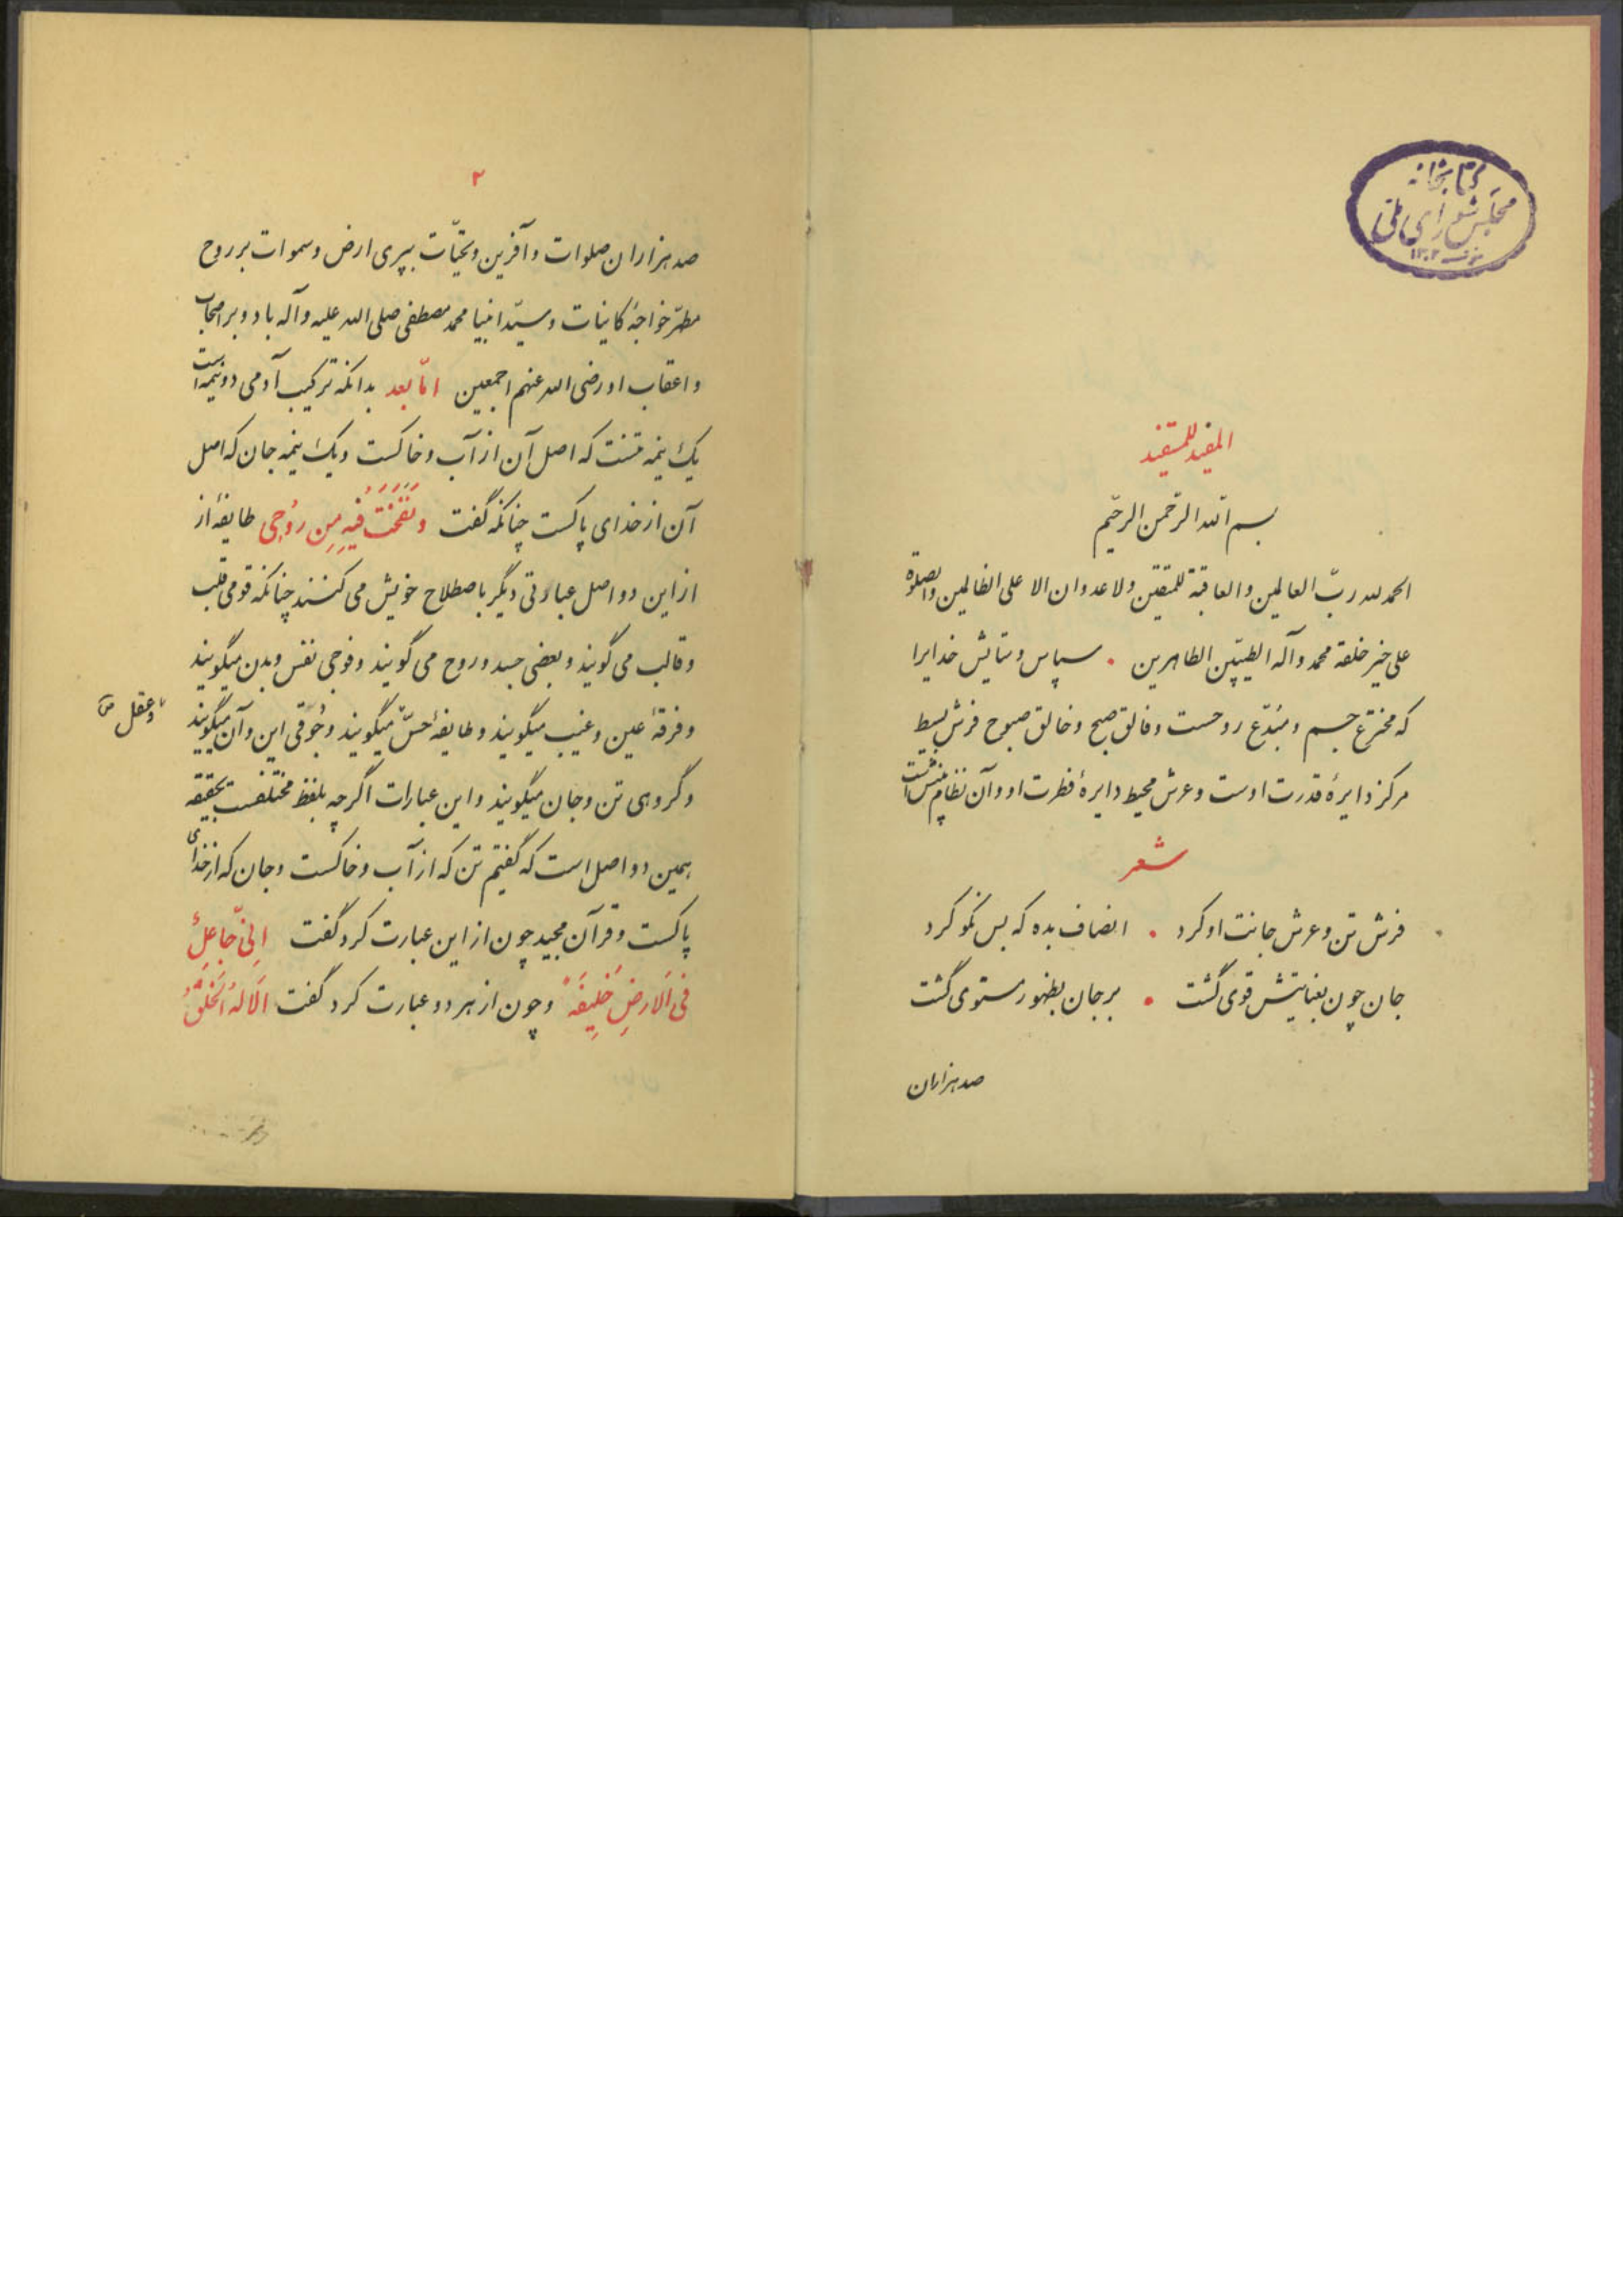 کتابخانه
مجلس شورای ملی
المفید للمستفید
بسم الله الرحمن الرحیم
الحمد لله ربّ العالمین والعاقبة للمتقین ولا عدوان الا علی الظالمین والصلوة
علی خیر خلقه محمد وآله الطیّبین الطاهرین ۰ سپاس و ستایش خدایرا
که مخترع جسم و مبدّع روحست و فالق صبح و خالق صبوح فرش بسیط
مرکز دایرهٔ قدرت اوست و عرش محیط دایرهٔ فطرت او و آن نظام
شعر
فرش تن و عرش جانت او کرد ۰ انصاف بده که بس نکو کرد
جان چون بعنایتش قوی گشت ۰ بر جان بظهور مستوی گشت
صد هزاران
۲
صد هزاران صلوات و آفرین و تحیّات بپری ارض و سموات بر روح
مطهّر خواجهٔ کاینات و سیّد انبیا محمد مصطفی صلی الله علیه وآله باد و بر اصحاب
و اعقاب او رضی الله عنهم اجمعین امّا بعد بدانکه ترکیب آدمی دو نیمه است
یک نیمه تنست که اصل آن از آب و خاکست و یک نیمه جان که اصل
آن از خدای پاکست چنانکه گفت وَنَفَخْتُ فیهِ مِن رُوحی طایفهٔ از
از این دو اصل عبارتی دیگر باصطلاح خویش می کنند چنانکه قومی قلب
و قالب می گویند و بعضی جسد و روح می گویند و فوجی نفس و بدن میگویند
و فرقهٔ عین و غیب میگویند و طایفهٔ حسّ میگویند و جُوقی این و آن میگویند
و عقل
و گروهی تن و جان میگویند و این عبارات اگرچه بلفظ مختلفست بحقیقه
همین دو اصل است که گفتیم تن که از آب و خاکست و جان که از خدای
پاکست و قرآن مجید چون از این عبارت کرد گفت اِنّی جاعِلٌ
فی الاَرضِ خَلیفَةً و چون از هر دو عبارت کرد گفت اَلا لَهُ الخَلقُ